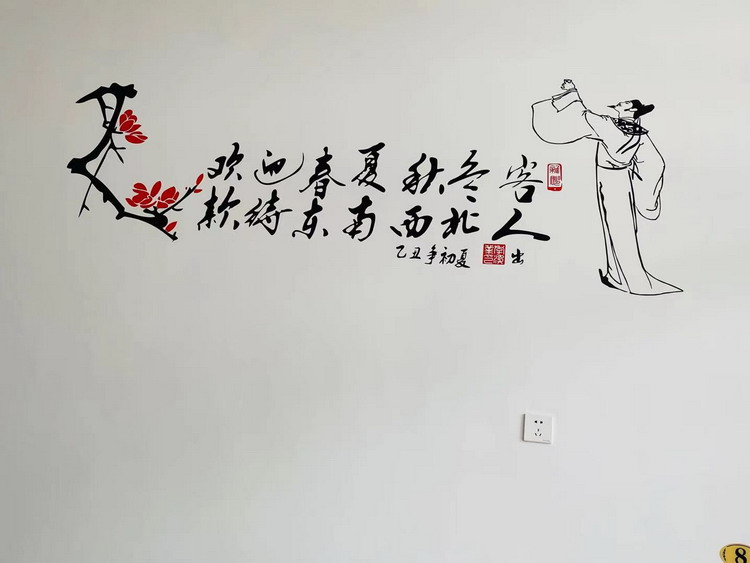 欢迎春夏秋冬客
款待东南西北人
乙丑争初夏 出
8